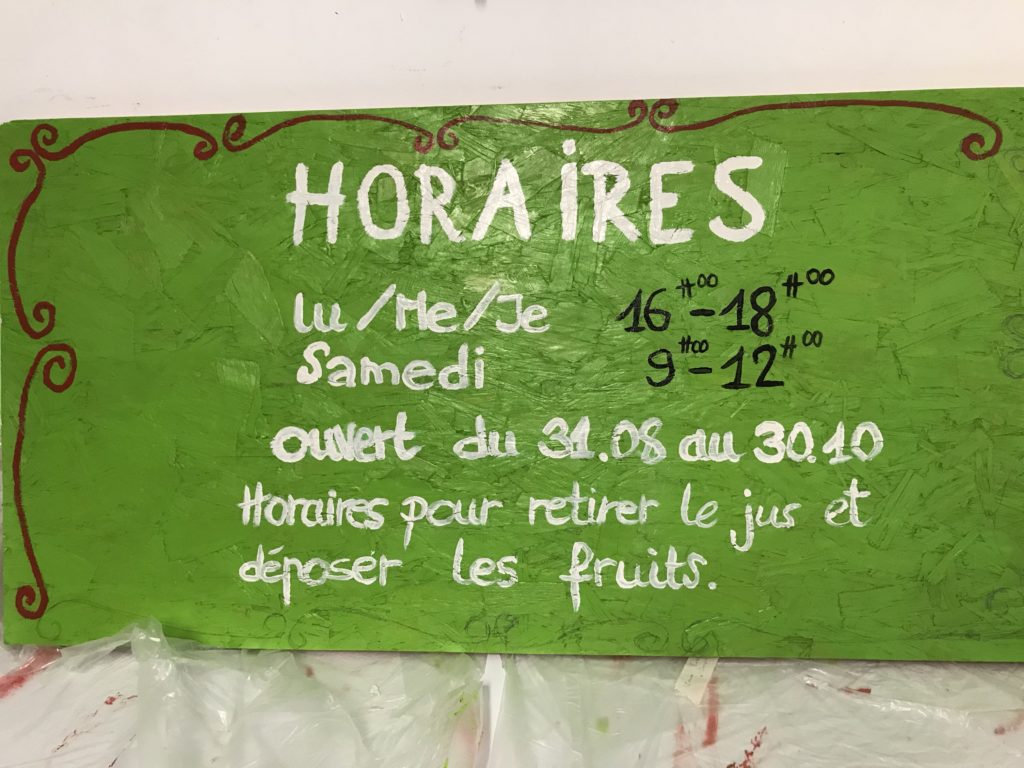 HORAIRES
lu/Me/Je 16H00-18H00
Samedi 9H00-12H00
ouvert du 31.08 au 30.10
Horaires pour retirer le jus et
déposer les fruits.